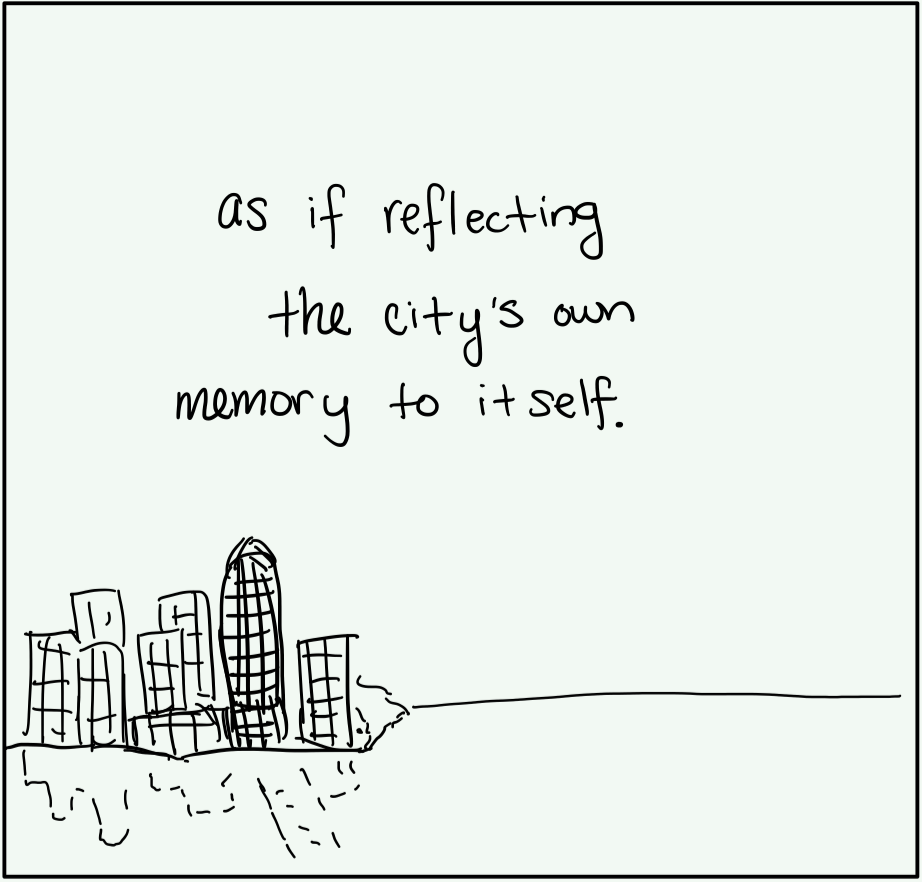 as if reflecting
the city's own
memory to itself.